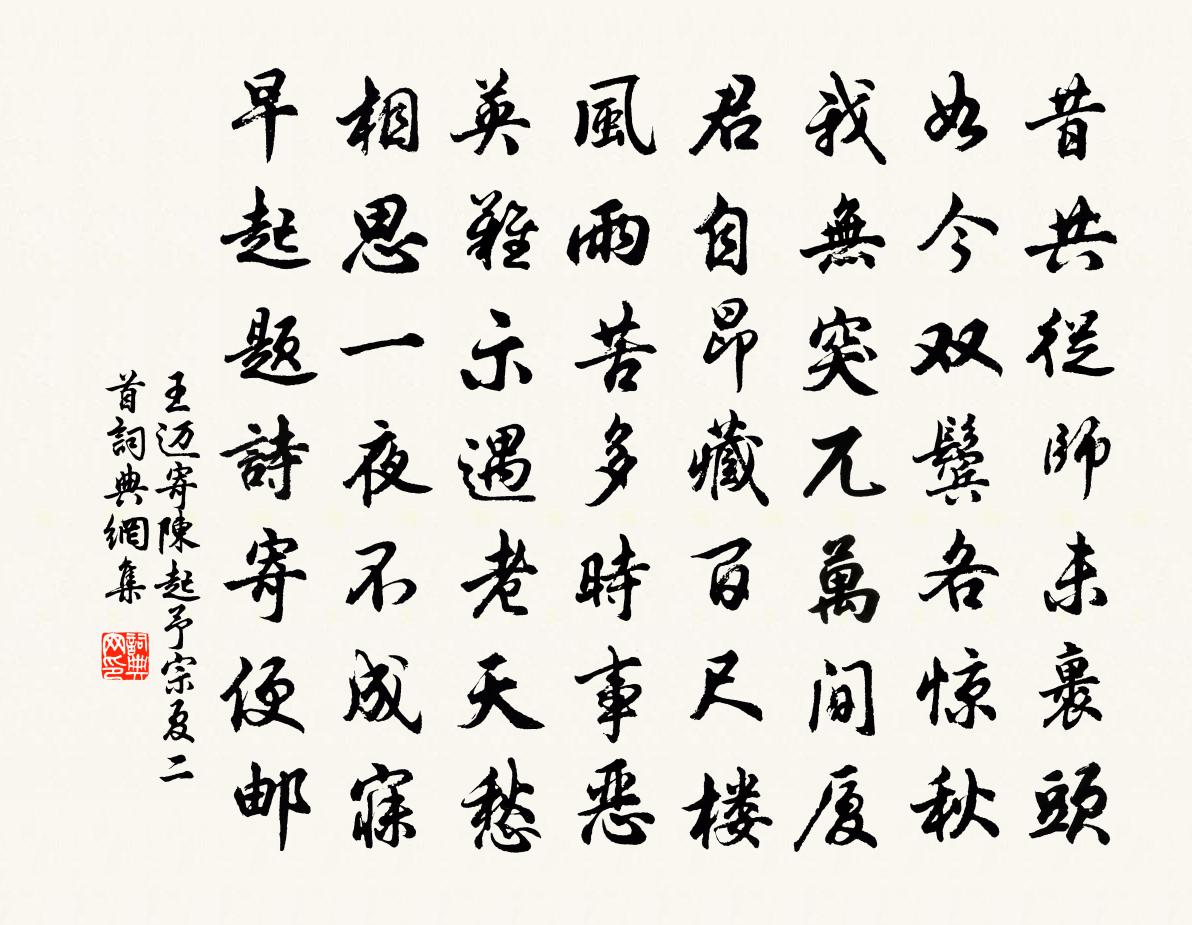 昔共從師未裹頭
如今双鬓各惊秋
我無突兀萬间厦
君自昂藏百尺楼
風雨苦多時事恶
英難示遇老天愁
相思一夜不成寐
早起题詩寄便邮
王迈寄陳起予宗夏二
首詞典網集
詞典网印